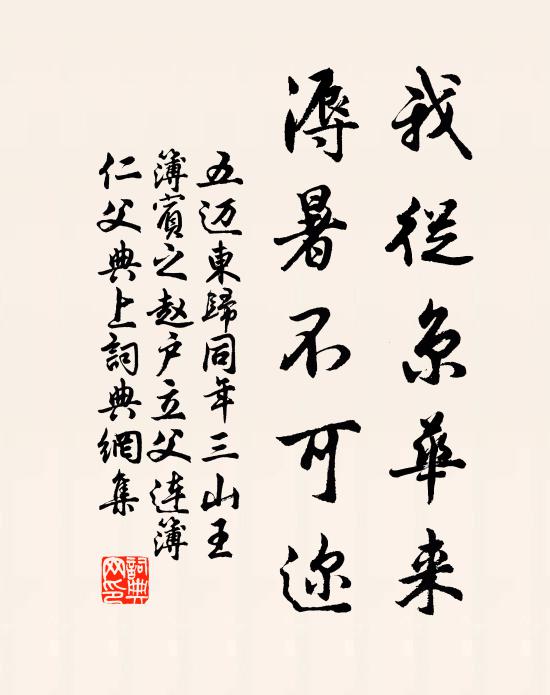 我從京華来
溽暑不可迩
五迈東歸同年三山王
薄賓之赵户立父连簿
仁父典上詞典網集
詞典网印